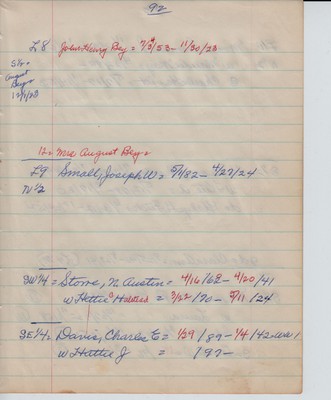 92
L8 John Henry Bey = 7/2/53 - 11/30/23
S½ =
August
Beyer
12/1/23
12 = Mrs August Bey =
L9 Small, Joseph W = 5/1/82 - 4/27/24
N ½
SW ¼ = Stone, N. Austin = 4/16/62 - 4/20/41
w Hettie Halstead = 3/22/70 - 5/11/24
SE ¼ = Davis, Charles E = 1/29/89 - 1/4/42 = WW1
w Hattie J = /97 -